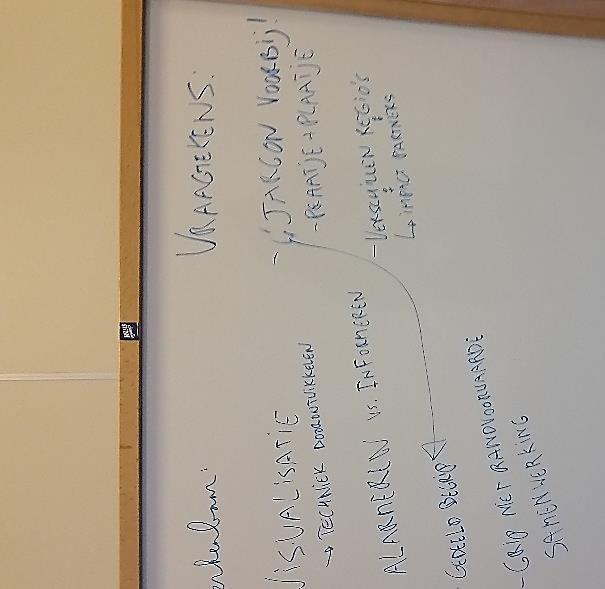 VISUALISATIE
→ TECHNIEK DOORONTWIKKELEN
ALARMEREN vs. INFORMEREN
- GEDEELD BEGRIP
- GRIP NIET RANDVOORWAARDE
SAMENWERKING
VRAAGTEKENS:
- "JARGON VOORBIJ!
- PRAATJE + PLAATJE
- VERSCHILLEN REGIO'S
↳ IMPACT PARTNERS